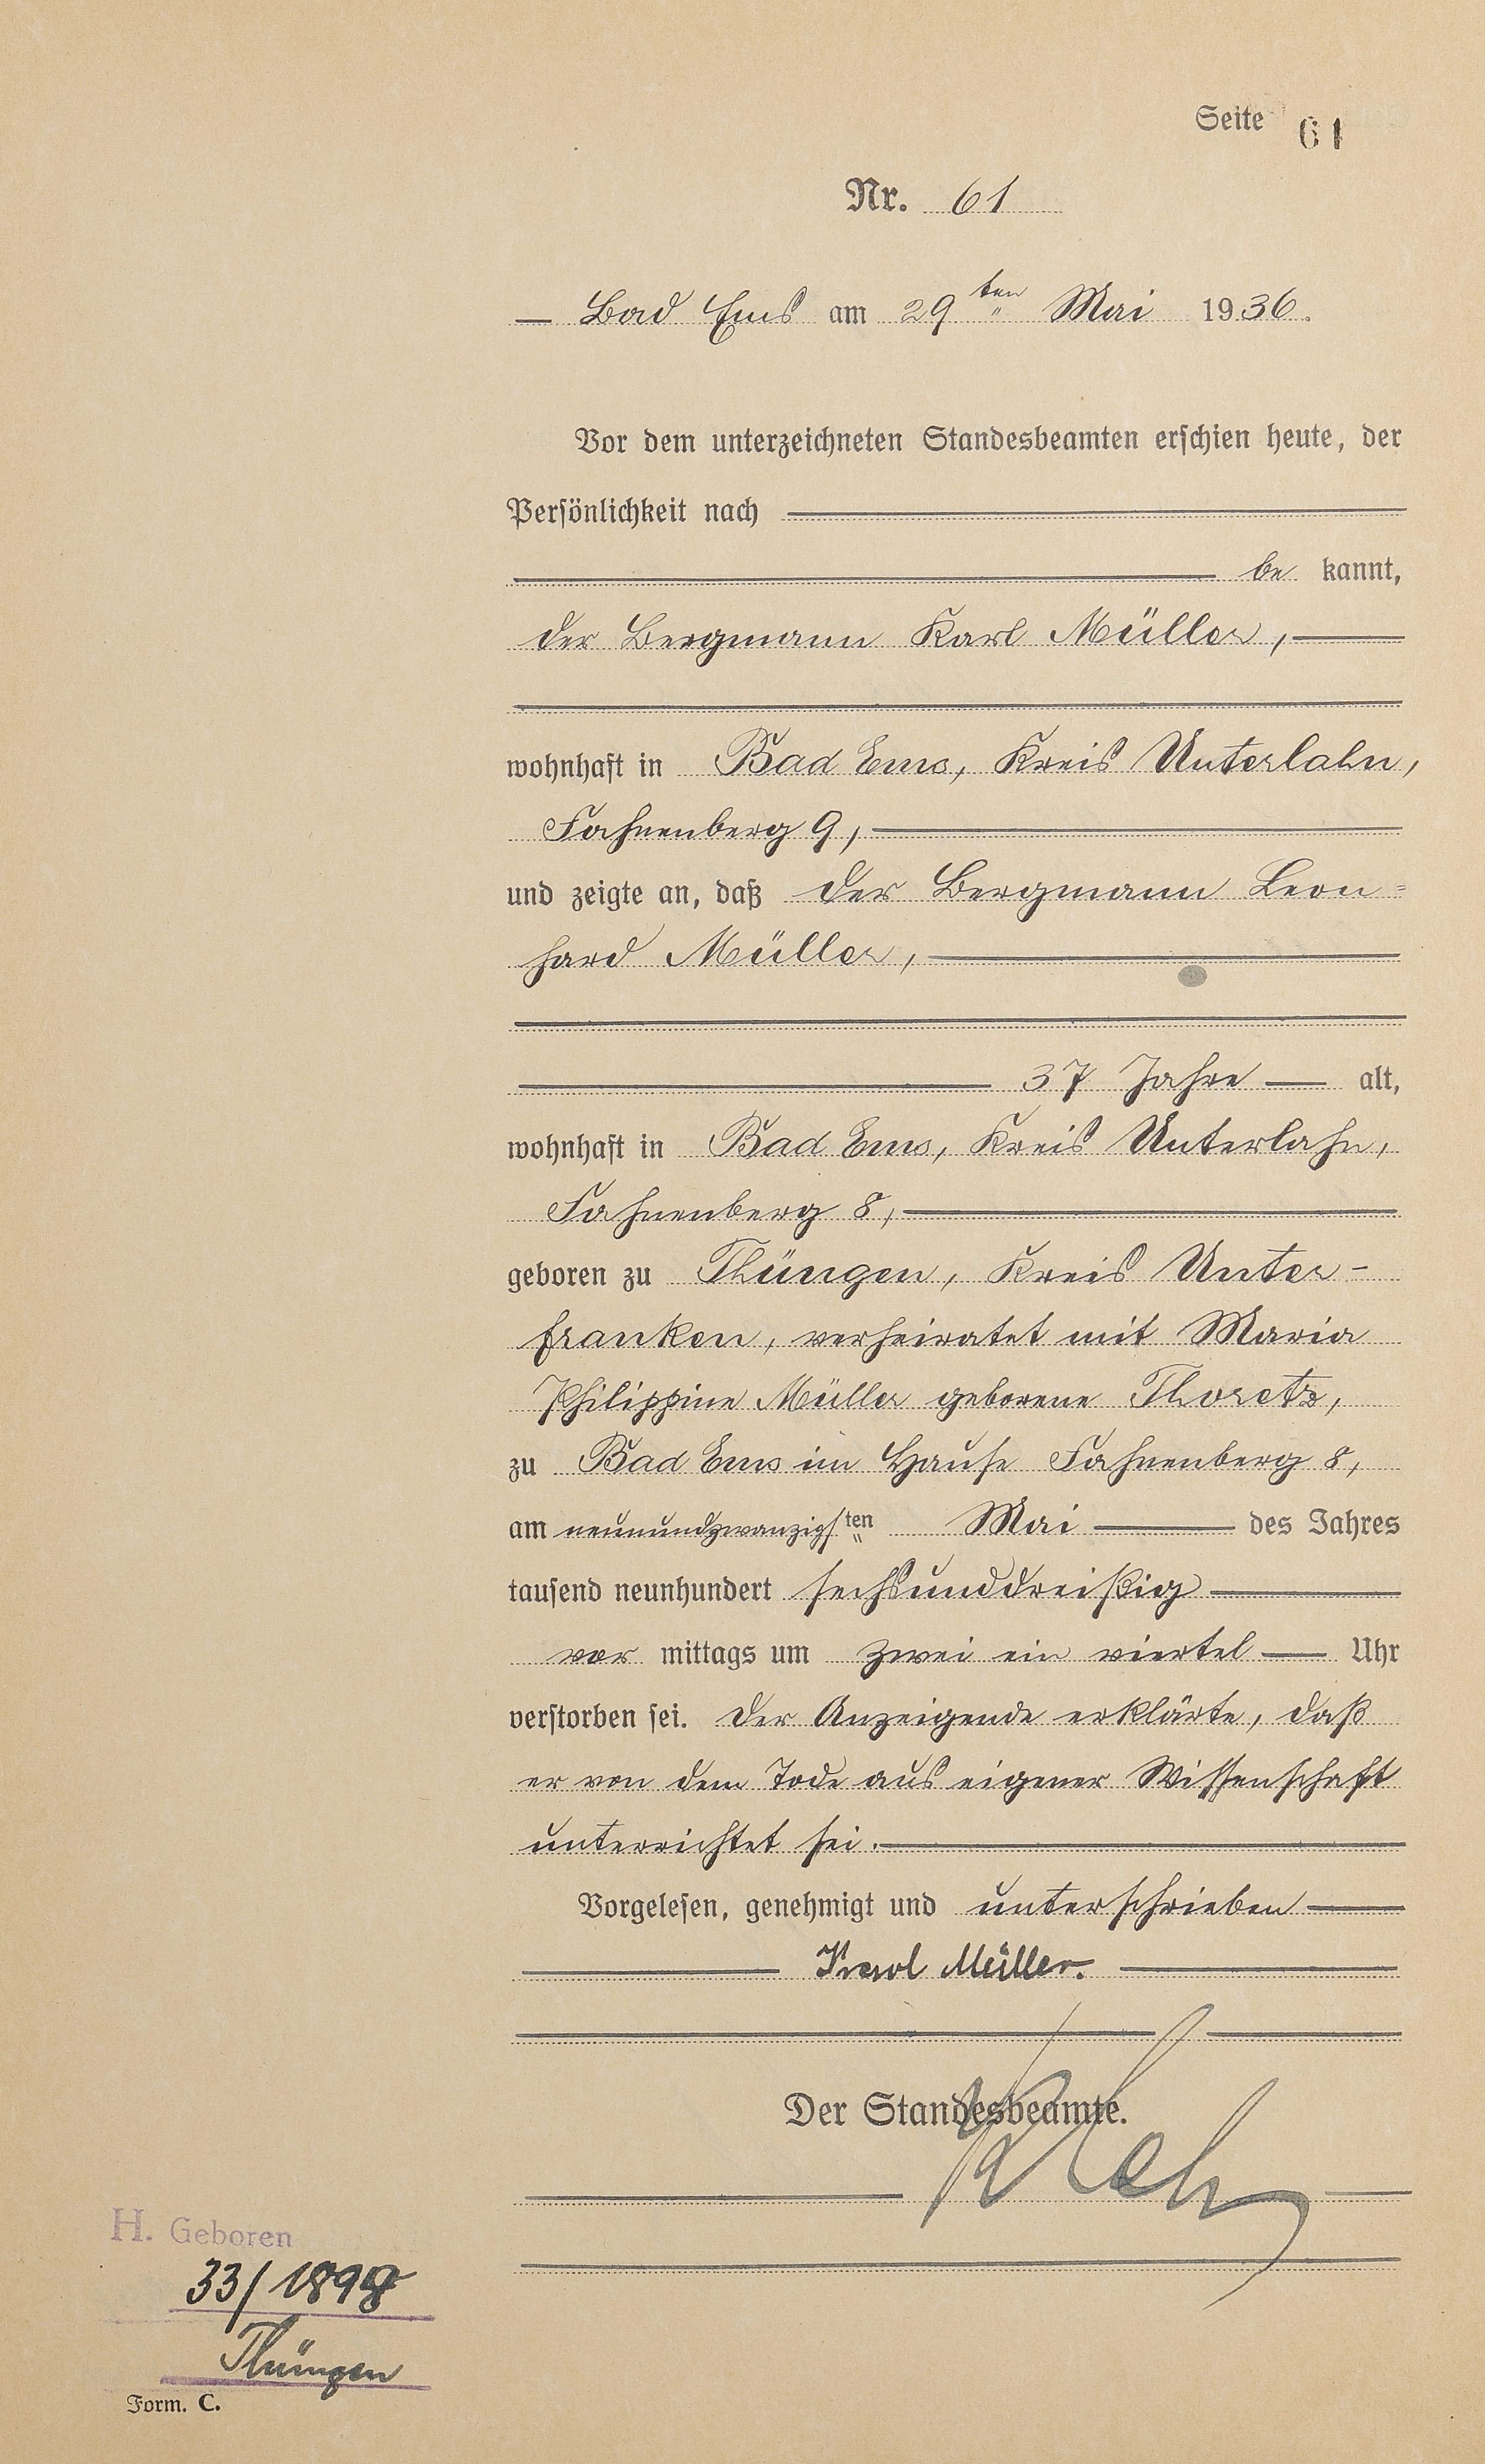 Seite 61
Nr. 61
Bad Ems am 29ten Mai 1936.
Vor dem unterzeichneten Standesbeamten erschien heute, der
Persönlichkeit nach
be kannt,
der Bergmann Karl Müller,
wohnhaft in Bad Ems, Kreis Unterlahn,
Fahnenberg 9,
und zeigte an, daß der Bergmann Leon=
hard Müller,
37 Jahre alt,
wohnhaft in Bad Ems, Kreis Unterlahn,
Fahnenberg 8,
geboren zu Thüngen, Kreis Unter-
franken, verheiratet mit Maria
Philippine Müller geborene Thoretz,
zu Bad Ems im Hause Fahnenberg 8,
am neunundzwanzigsten Mai des Jahres
tausend neunhundert sechsunddreißig
vor mittags um zwei ein viertel Uhr
verstorben sei. Der Anzeigende erklärte, daß
er von dem Tode aus eigener Wissenschaft
unterrichtet sei.
Vorgelesen, genehmigt und unterschrieben
Karl Müller.
Der Standesbeamte.
H. Geboren
33/1898
Thüngen
Form. C.